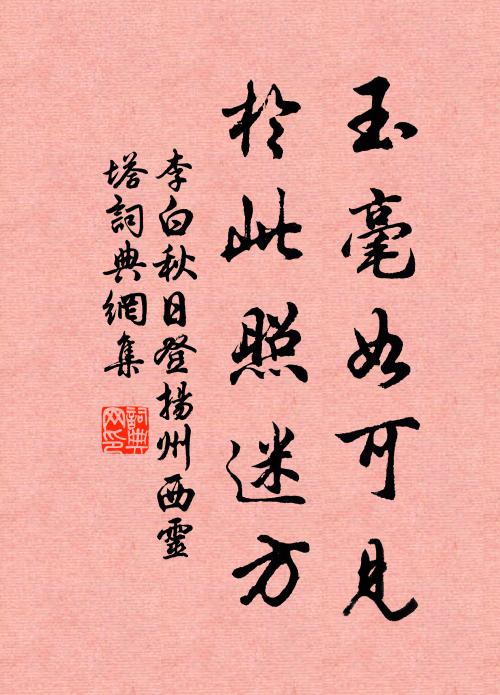 玉毫如可見
於此照迷方
李白秋日登揚州西靈
塔詞典網集
詞典
网印